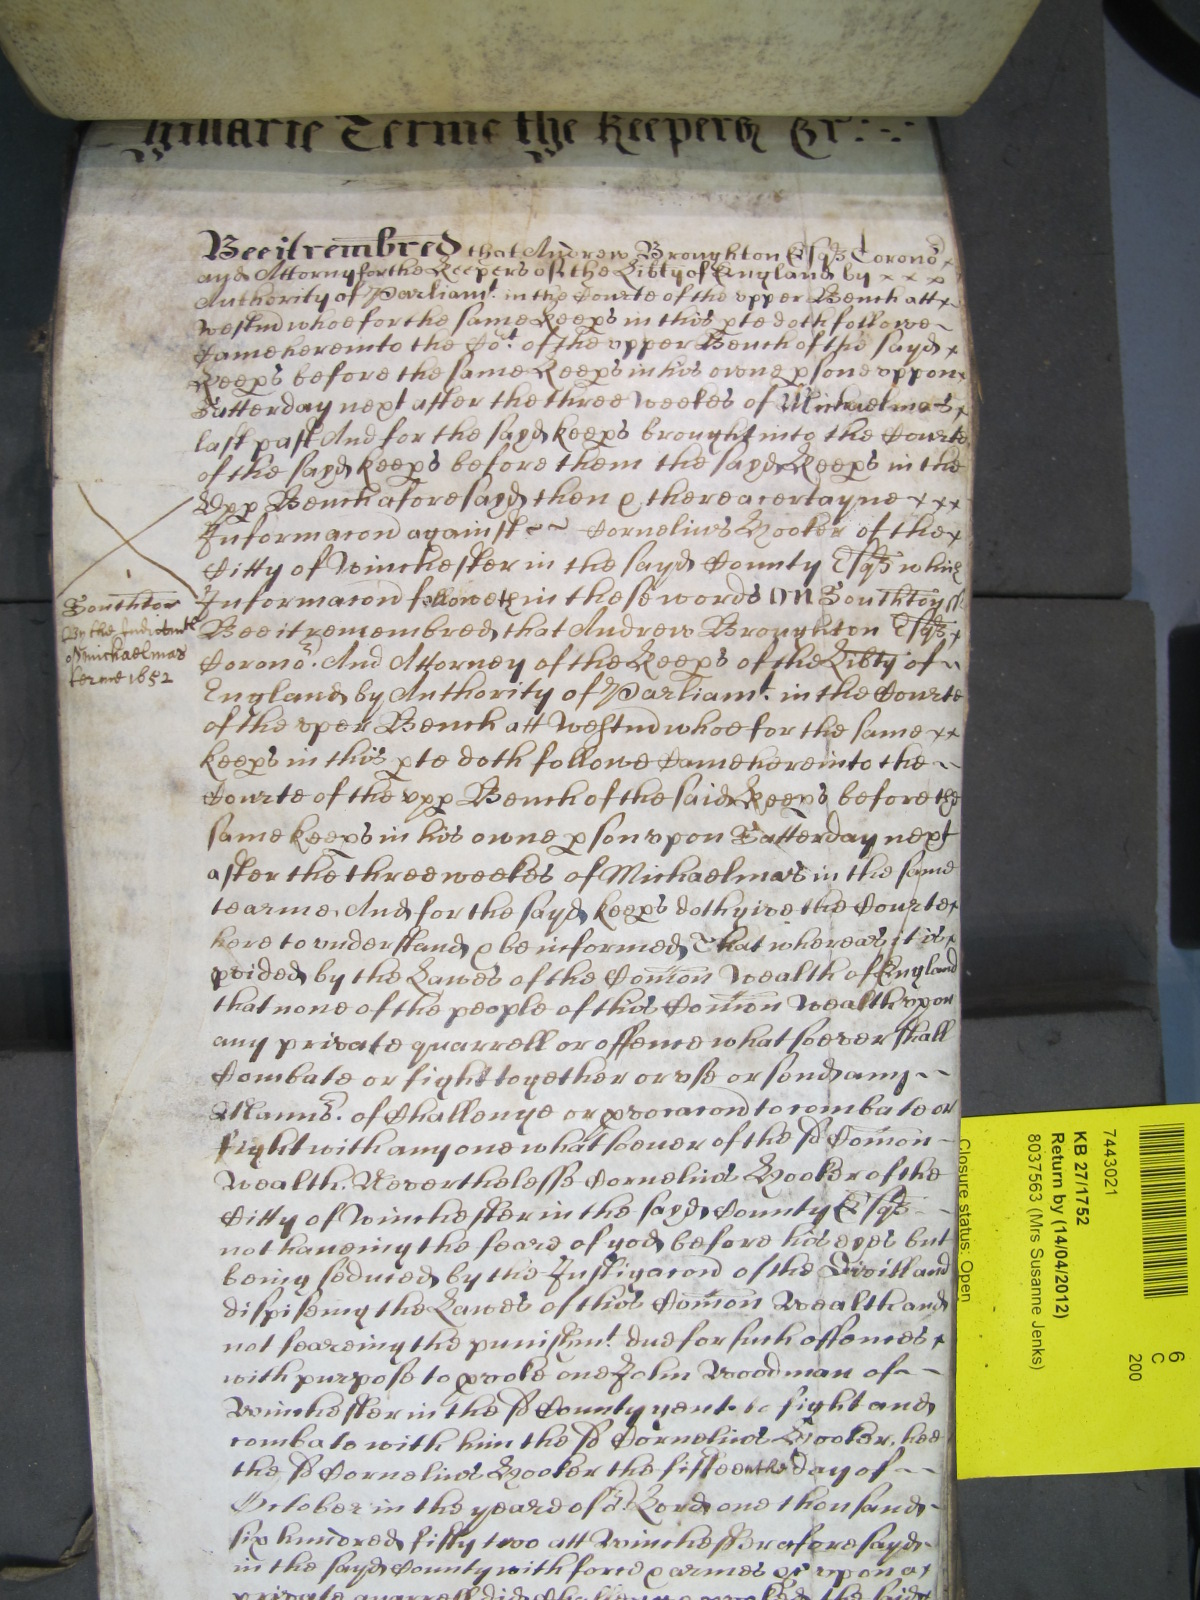 Hillarie Terme the Keepers &c
Bee it rembred that Andrew Broughton Esqr Corono
and Attorny for the Keepers of the Libty of England by
Authority of Parliamt. in the Courte of the upper Bench att
Westm whoe for the same Keeps in this pte doth followe
Came here into the Cot. of the upper Bench of the sayd
Keeps before the same Keeps in his owne psone uppon
Satterday next after the three weekes of Michaelmas
last past And for the sayd keeps brought into the Courte
of the sayd keeps before them the sayd Keeps in the
Upp Bench aforesayd then & there a certayne
Informacon against Cornelius Hooker of the
Citty of Winchester in the sayd County Esqr which
Informacon followeth in these words SS Southton
Southton
By the Indictmt
of Michaelmas
terme 1652
Bee it remembred that Andrew Broughton Esqr
Corono. And Attorney of the Keeps of the Libty of
England by Authority of Parliamt. in the Courte
of the uper Bench att Westm whoe for the same
keeps in this pte doth followe Came here into the
Courte of the upp Bench of the said Keeps before the
same keeps in his owne pson upon Satterday next
after the three weekes of Michaelmas in the same
tearme And for the sayd keeps doth give the Courte
here to understand & be informed That whereas it is
pvided by the Lawes of the Comon Wealth of England
that none of the people of this Comon Wealth upon
any private quarrell or offence whatsoever shall
Combate or fight together or use or send any
Manns. of Challenge or pvocacon to combate or
fight with any one whatsoever of the sd Comon
Wealth. Neverthelesse Cornelius Hooker of the
Citty of Winchester in the sayd County Esqr
not haveing the feare of god before his eyes but
being seduced by the Instigacon of the Divill and
dispiseing the Lawes of this Comon Wealth and
not feareing the punishmt. due for such offences
with purpose to pvoke one John Woodman of
Winchester in the sd County gent. to fight and
combate with him the sd Cornelius Hooker, hee
the sd Cornelius Hooker the fifteenthe day of
October in the yeare of or. Lord one thousand
six hundred fifty two att Winchester aforesayd
in the sayd County with force & armes &c upon a
private quarrell did Challenge pvoke the said
7443021
KB 27/1752
Return by (14/04/2012)
8037563 (Mrs Susanne Jenks)
Closure status: Open
6
C
200